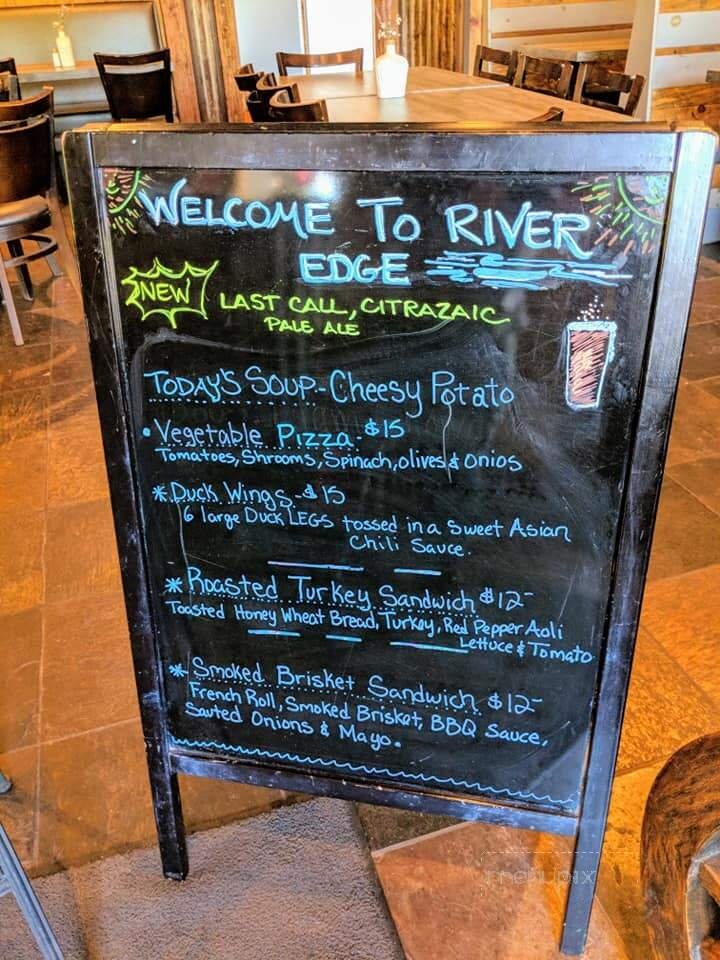 WELCOME TO RIVER
EDGE
NEW
LAST CALL, CITRAZAIC
PALE ALE
TODAY'S SOUP-Cheesy Potato
• Vegetable Pizza-$15
Tomatoes, Shrooms, Spinach, olives & Onios
* Duck Wings-$15
6 large Duck LEGS tossed in a Sweet Asian
Chili Sauce.
* Roasted Turkey Sandwich $12-
Toasted Honey Wheat Bread, Turkey, Red Pepper Aoli
Lettuce & Tomato
* Smoked Brisket Sandwich $12-
French Roll, Smoked Brisket, BBQ Sauce,
Sauted Onions & Mayo.